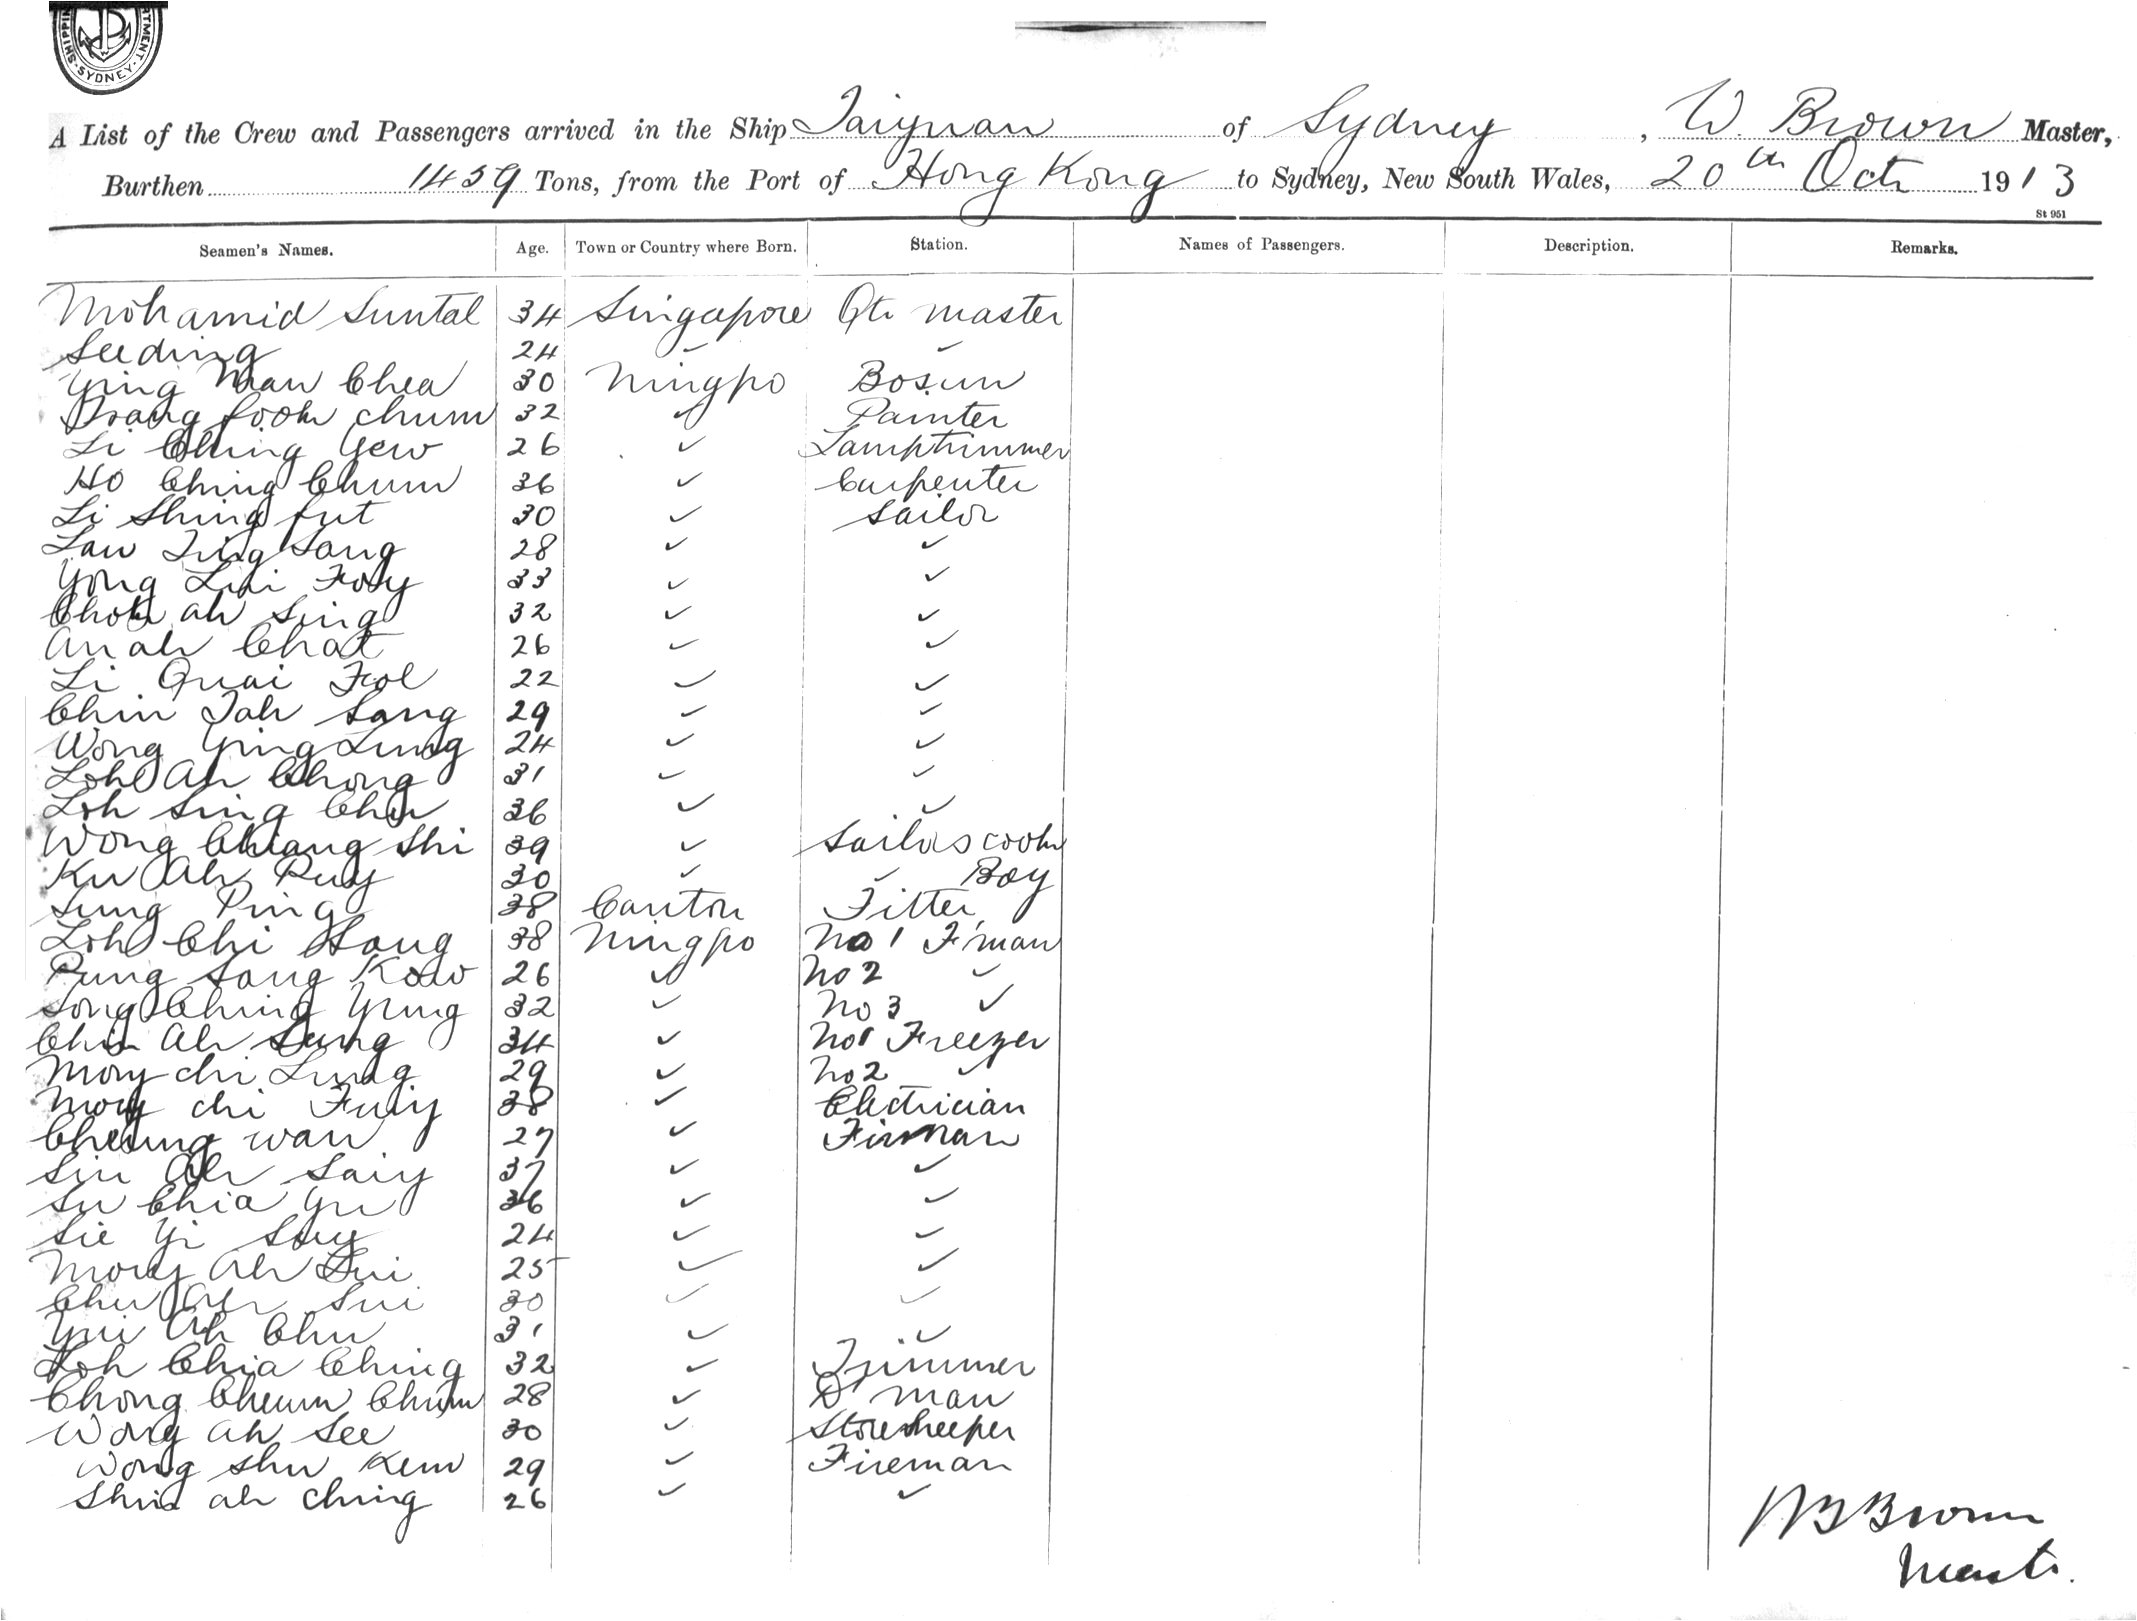 SHIPPING DEPARTMENT SYDNEY
A List of the Crew and Passengers arrived in the Ship Taiyuan of Sydney, W. Brown Master,
Burthen 1459 Tons, from the Port of Hong Kong to Sydney, New South Wales, 20th Oct 1913
St 951
Seamen's Names. Age. Town or Country where Born. Station. Names of Passengers. Description. Remarks.
Mohamid Suntal 34 Singapore Qtr master
Seeding 24 ✓ ✓
Ying Man Chea 30 Ningpo Bosun
fook chum 32 ✓ Painter
Li Ching Yew 26 ✓ Lamptrimmer
Ho Ching Chum 36 ✓ Carpenter
Li Shing fut 30 ✓ Sailor
Law Ting Sang 28 ✓ ✓
Yong Lui Foy 33 ✓ ✓
Chok ah Sing 32 ✓ ✓
An ah Chat 26 ✓ ✓
Li Quai Fol 22 ✓ ✓
Chin Tah Sang 29 ✓ ✓
Wong Ying Lung 24 ✓ ✓
Loh Ah Chong 31 ✓ ✓
Loh Sing Chu 36 ✓ ✓
Wong Chiang Shi 39 ✓ Sailors cook
Ku Ah Puy 30 ✓ ✓ Boy
Sung Ping 38 Canton Fitter
Loh Chi Hong 38 Ningpo No 1 F'man
Pung Sang Kow 26 ✓ No 2 ✓
Song Ching Yung 32 ✓ No 3 ✓
Chin Ah Sung 34 ✓ No 1 Freezer
Mory chi Lung 29 ✓ No 2 ✓
Mory chi Fuiy 38 ✓ Electrician
Cheung wan 27 ✓ Fireman
Siu Ah Saiy 37 ✓ ✓
Su Chia Yu 36 ✓ ✓
Sie Yi Suy 24 ✓ ✓
Mory Ah Sui 25 ✓ ✓
Chu Ah Sui 30 ✓ ✓
Yui Ah Chu 31 ✓ ✓
Loh Chia Ching 32 ✓ Trimmer
Chong Cheum Chum 28 ✓ D man
Wong Ah See 30 ✓ Storekeeper
Wong Shu Kum 29 ✓ Fireman
Shin ah ching 26 ✓ ✓
W Brown
Master.